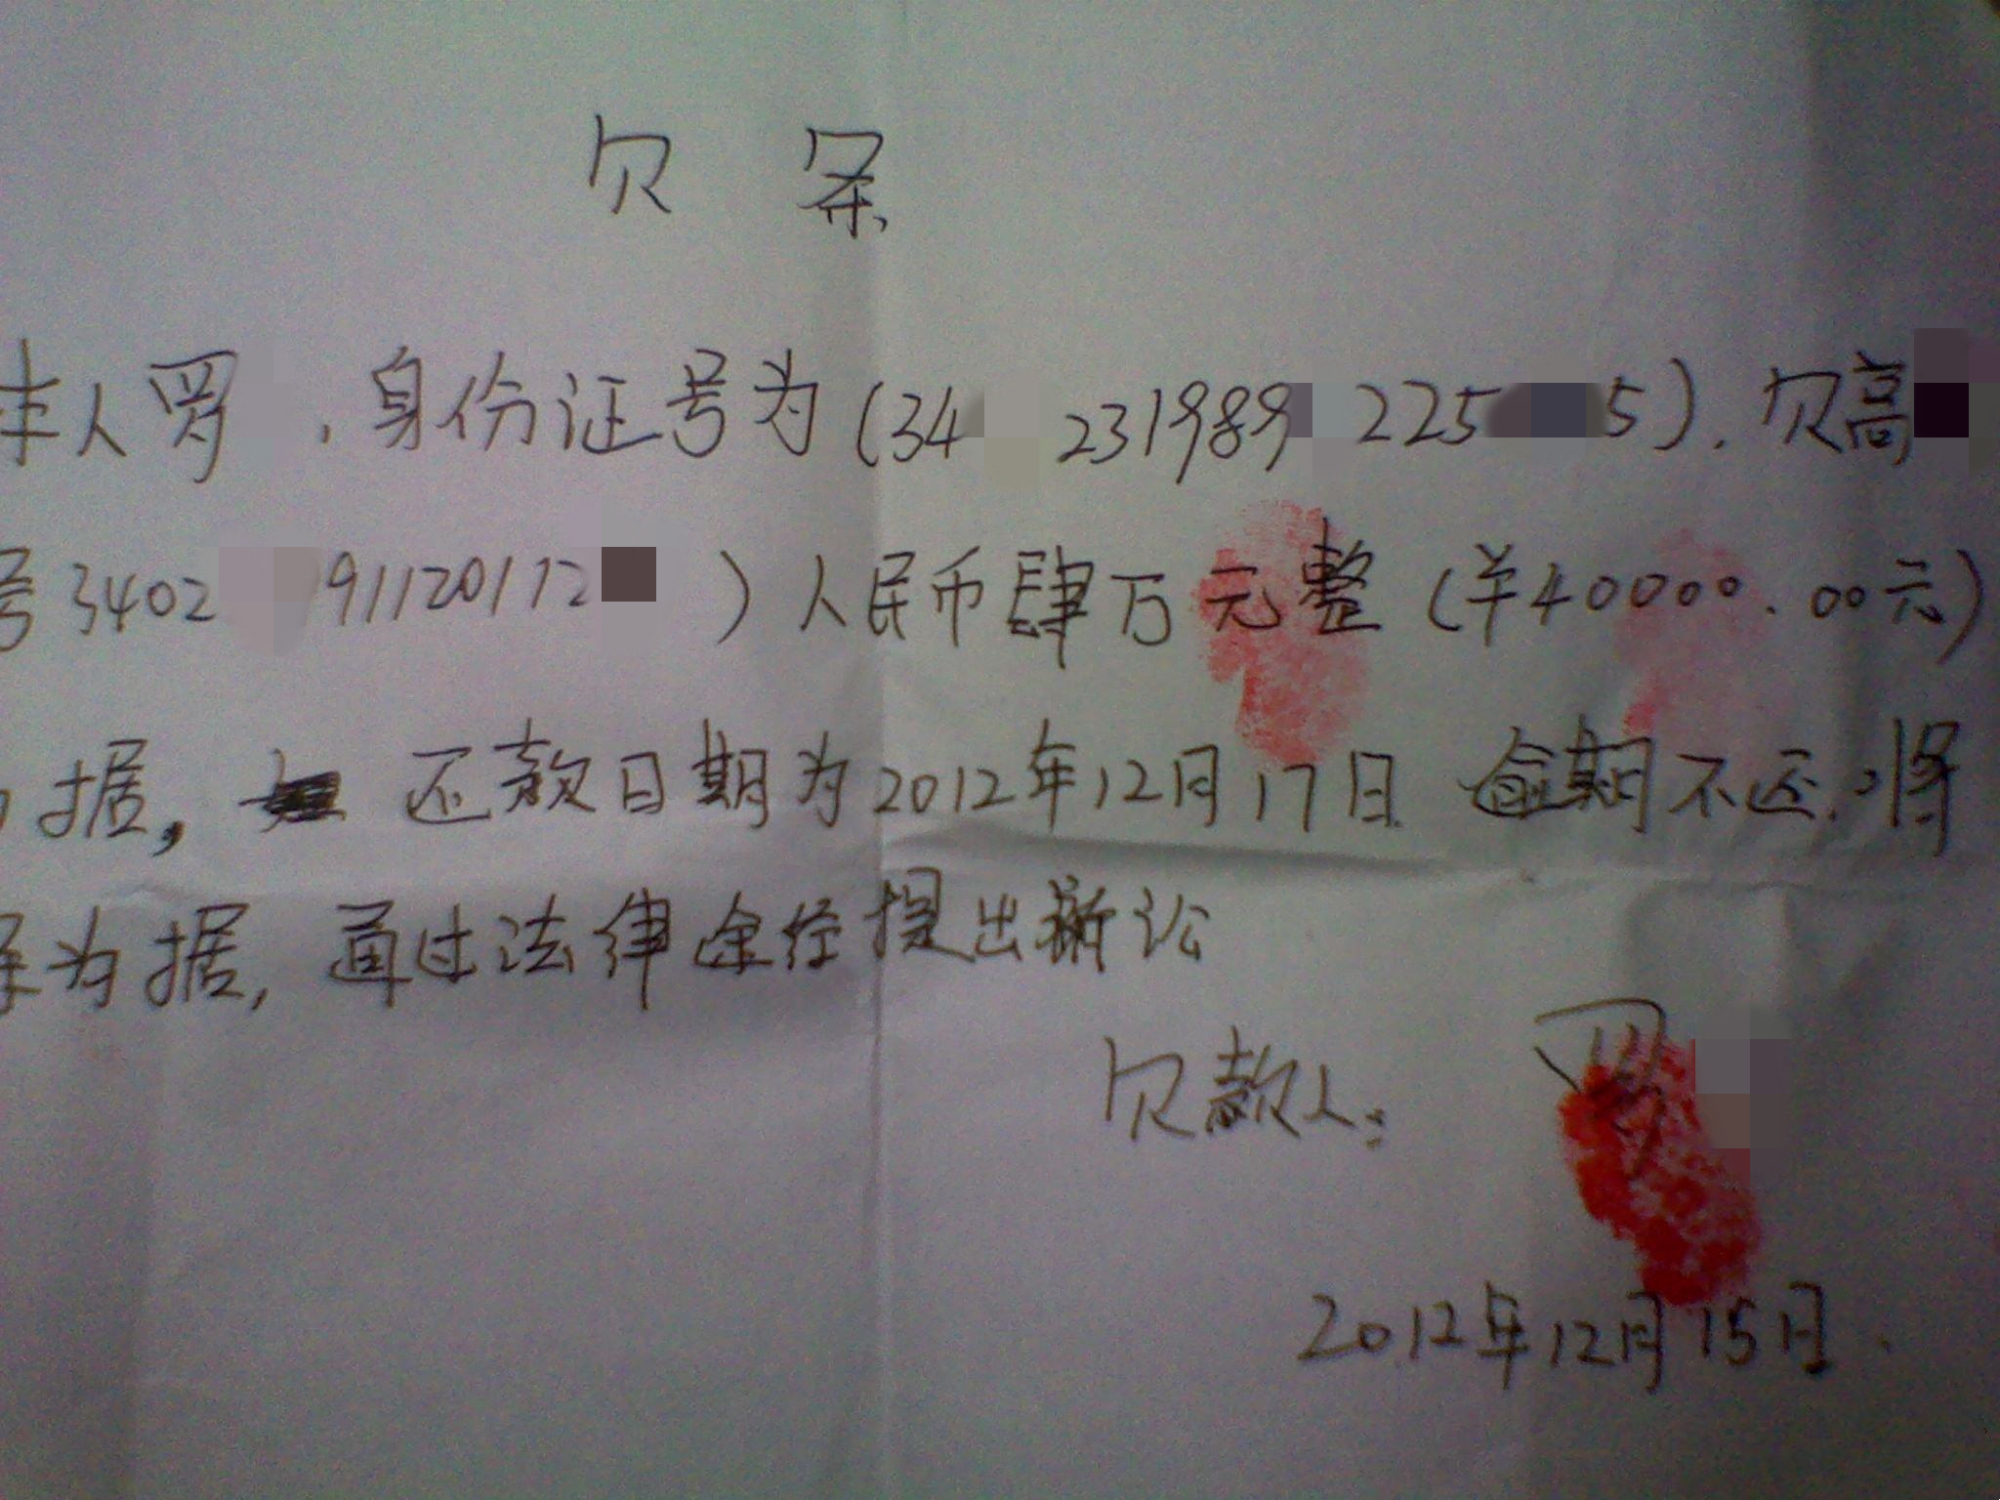 欠条
本人罗 ，身份证号为(34 231989 225 5)．欠高
号3402 91120112 ）人民币肆万元整（￥40000.00元）
据， 还款日期为2012年12月17日 逾期不还，将
为据，通过法律途经提出诉讼
欠款人： 罗
2012年12月15日．